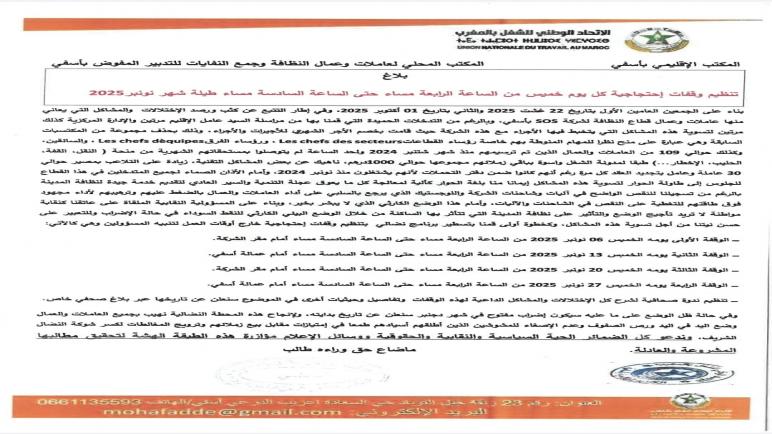 الاتحاد الوطني للشغل بالمغرب
UNION NATIONALE DU TRAVAIL AU MAROC
المكتب الإقليمي بأسفي المكتب المحلي لعاملات وعمال النظافة وجمع النفايات للتدبير المفوض بأسفي
بلاغ
تنظيم وقفات إحتجاجية كل يوم خميس من الساعة الرابعة مساء حتى الساعة السادسة مساء طيلة شهر نونبر 2025
بناء على الجمعين العامين الأول بتاريخ 22 غشت 2025 والثاني بتاريخ 01 أكتوبر 2025، وفي إطار التتبع عن كثب ورصد الإختلالات والمشاكل التي يعاني
منها عاملات وعمال قطاع النظافة لشركة SOS بأسفي، وبالرغم من التدخلات الحميدة التي قمنا بها من مراسلة السيد عامل الإقليم مرتين والإدارة المركزية كذلك
مرتين لتسوية هذه المشاكل التي يتخبط فيها الأجراء مع هذه الشركة حيث قامت بخصم الأجر الشهري للأجيرات والأجراء، وذلك بحذف مجموعة من المكتسبات
السابقة وهي عبارة على منح نظرا للمهام المنوطة بهم خاصة رؤساء القطاعات Les chefs des secteurs، ورؤساء الفرق Les chefs d'équipes، والسائقين،
وكذلك حوالي 109 من العاملات والعمال الذين تم ترسيمهم منذ شهر شتنبر 2024 ولحد الساعة لم يتوصلوا بمستحقاتهم الشهرية من منحة ( النقل، القفة،
الحليب، الإخطار...) طبقا لمدونة الشغل واسوة بباقي زملائهم مجموعها حوالي 1000درهم، ناهيك عن بعض المشاكل التقنية، زيادة على التلاعب بمصير حوالي
30 عاملة وعامل بتجديد العقد كل مرة رغم أنهم كانوا ضمن دفتر التحملات لأنهم يشتغلون منذ نونبر 2024، وأمام الأذان الصماء لجميع المتدخلين في هذا القطاع
للجلوس إلى طاولة الحوار لتسوية هذه المشاكل إيمانا منا بلغة الحوار كآلية لمعالجة كل ما يعوق عجلة التنمية والسير العادي لتقديم خدمة جيدة لنظافة المدينة
بالرغم من تسجيلنا للنقص الواضح في آليات وشاحنات الشركة واللوجستيك الذي يرجع بالسلبي على أداء العاملات والعمال بالضغط عليهم وترهيبهم لأداء مجهود
فوق طاقتهم للتغطية على النقص في الشاحنات والآليات، وأمام هذا الوضع الكارثي الذي لا يبشر بخير، وبناء على المسؤولية النقابية الملقاة على عاتقنا كنقابة
مواطنة لا تريد تأجيج الوضع والتأثير على نظافة المدينة التي تتأثر بها الساكنة من خلال الوضع البيئي الكارثي للنقط السوداء في حالة الإضراب وللتعبير على
حسن نيتنا من أجل تسوية هذه المشاكل، وكخطوة أولى قمنا بتسطير برنامج نضالي بتنظيم وقفات إحتجاجية خارج أوقات العمل لتنبيه المسؤولين وهي كالآتي:
_ الوقفة الأولى يومه الخميس 06 نونبر 2025 من الساعة الرابعة مساء حتى الساعة السادسة مساء أمام مقر الشركة.
_ الوقفة الثانية يومه الخميس 13 نونبر 2025 من الساعة الرابعة مساء حتى الساعة السادسة مساء أمام عمالة أسفي.
_ الوقفة الثالثة يومه الخميس 20 نونبر 2025 من الساعة الرابعة مساء حتى الساعة السادسة مساء أمام مقر الشركة.
_ الوقفة الرابعة يومه الخميس 27 نونبر 2025 من الساعة الرابعة مساء حتى الساعة السادسة مساء أمام عمالة أسفي.
_ تنظيم ندوة صحافية لشرح كل الإختلالات والمشاكل الداعية لهذه الوقفات وتفاصيل وحيثيات أخرى في الموضوع سنعلن عن تاريخها عبر بلاغ صحفي خاص.
وفي حالة ظل الوضع على ما عليه سيكون إضراب مفتوح في شهر دجنبر سنعلن عن تاريخ بدايته، ولإنجاح هذه المحطة النضالية نهيب بجميع العاملات والعمال
وضع اليد في اليد ورص الصفوف وعدم الإصغاء للمشوشين الذين أطلقهم أسيادهم طمعا في إمتيازات مقابل بيع زملائهم وترويج المغالطات لكسر شوكة النضال
الشريف، وندعو كل الضمائر الحية السياسية والنقابية والحقوقية ووسائل الإعلام مؤازرة هذه الطبقة الهشة لتحقيق مطالبها
المشروعة والعادلة. ماضاع حق وراءه طالب
العنوان: رقم 23 زنقة جبل التوبقال حي السعادة أسفي/الهاتف 0661135593
البريد الإلكتروني: mohafadde@gmail.com